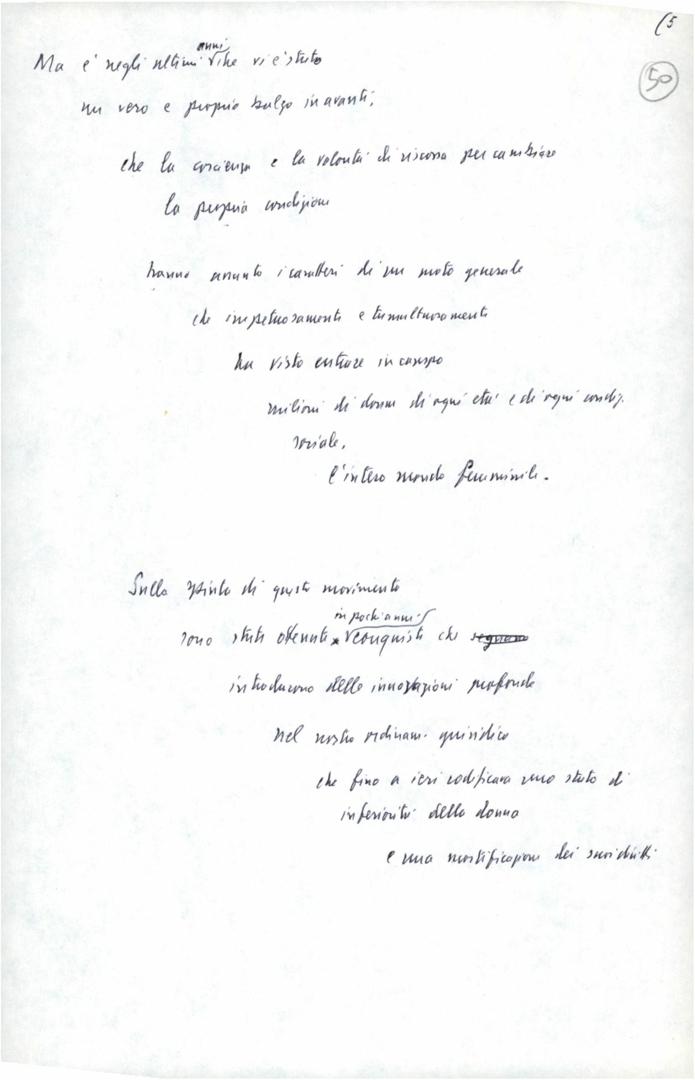 (5
50
Ma è negli ultimi anni che vi è stato
un vero e proprio balzo in avanti;
che la coscienza e la volontà di riscossa per cambiare
la propria condizione
hanno assunto i caratteri di un moto generale
che impetuosamente e tumultuosamente
ha visto entrare in campo
milioni di donne di ogni età e di ogni condiz.
sociale,
l'intero mondo femminile.
Sulla spinta di questo movimento
in pochi anni
sono state ottenute conquiste che segnano
introducono delle innovazioni profonde
nel nostro ordinam. giuridico
che fino a ieri codificava uno stato di
inferiorità della donna
e una mortificazione dei suoi diritti